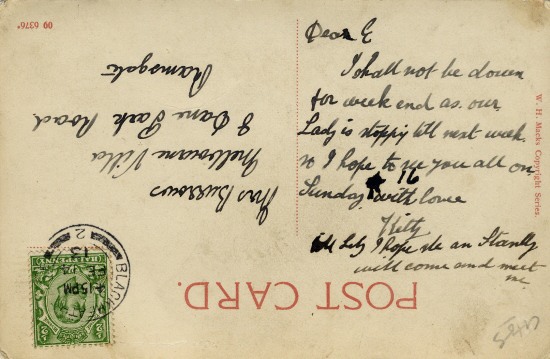 Dear E
I shall not be down
for week end as our
Lady is stoppy till next week
so I hope to see you all on
Sunday 16 with love
Kitty
tell Lily I hope she an Stanly
will come and meet
me
Mrs Burrows
Melbourne Villa
8 Dane Park Road
Ramsgate
POST CARD.
W. H. Macks Copyright Series.
09 6376
BLACKHEATH
4.15PM
DE 14
13
2
HALFPENNY